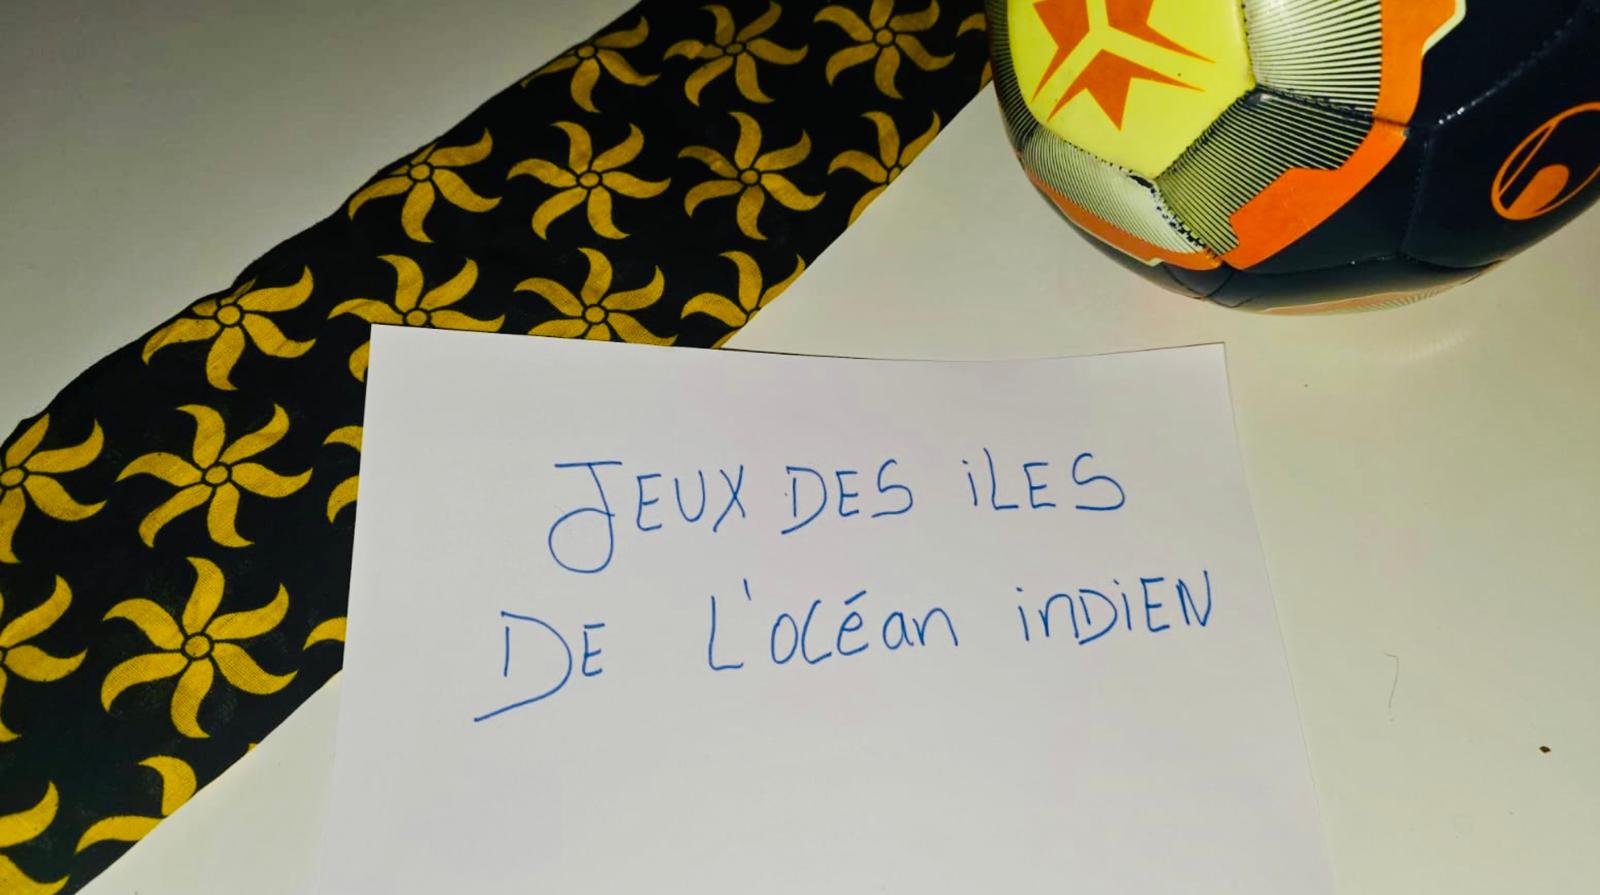 JEUX DES iLES
DE L'OCéan inDiEN